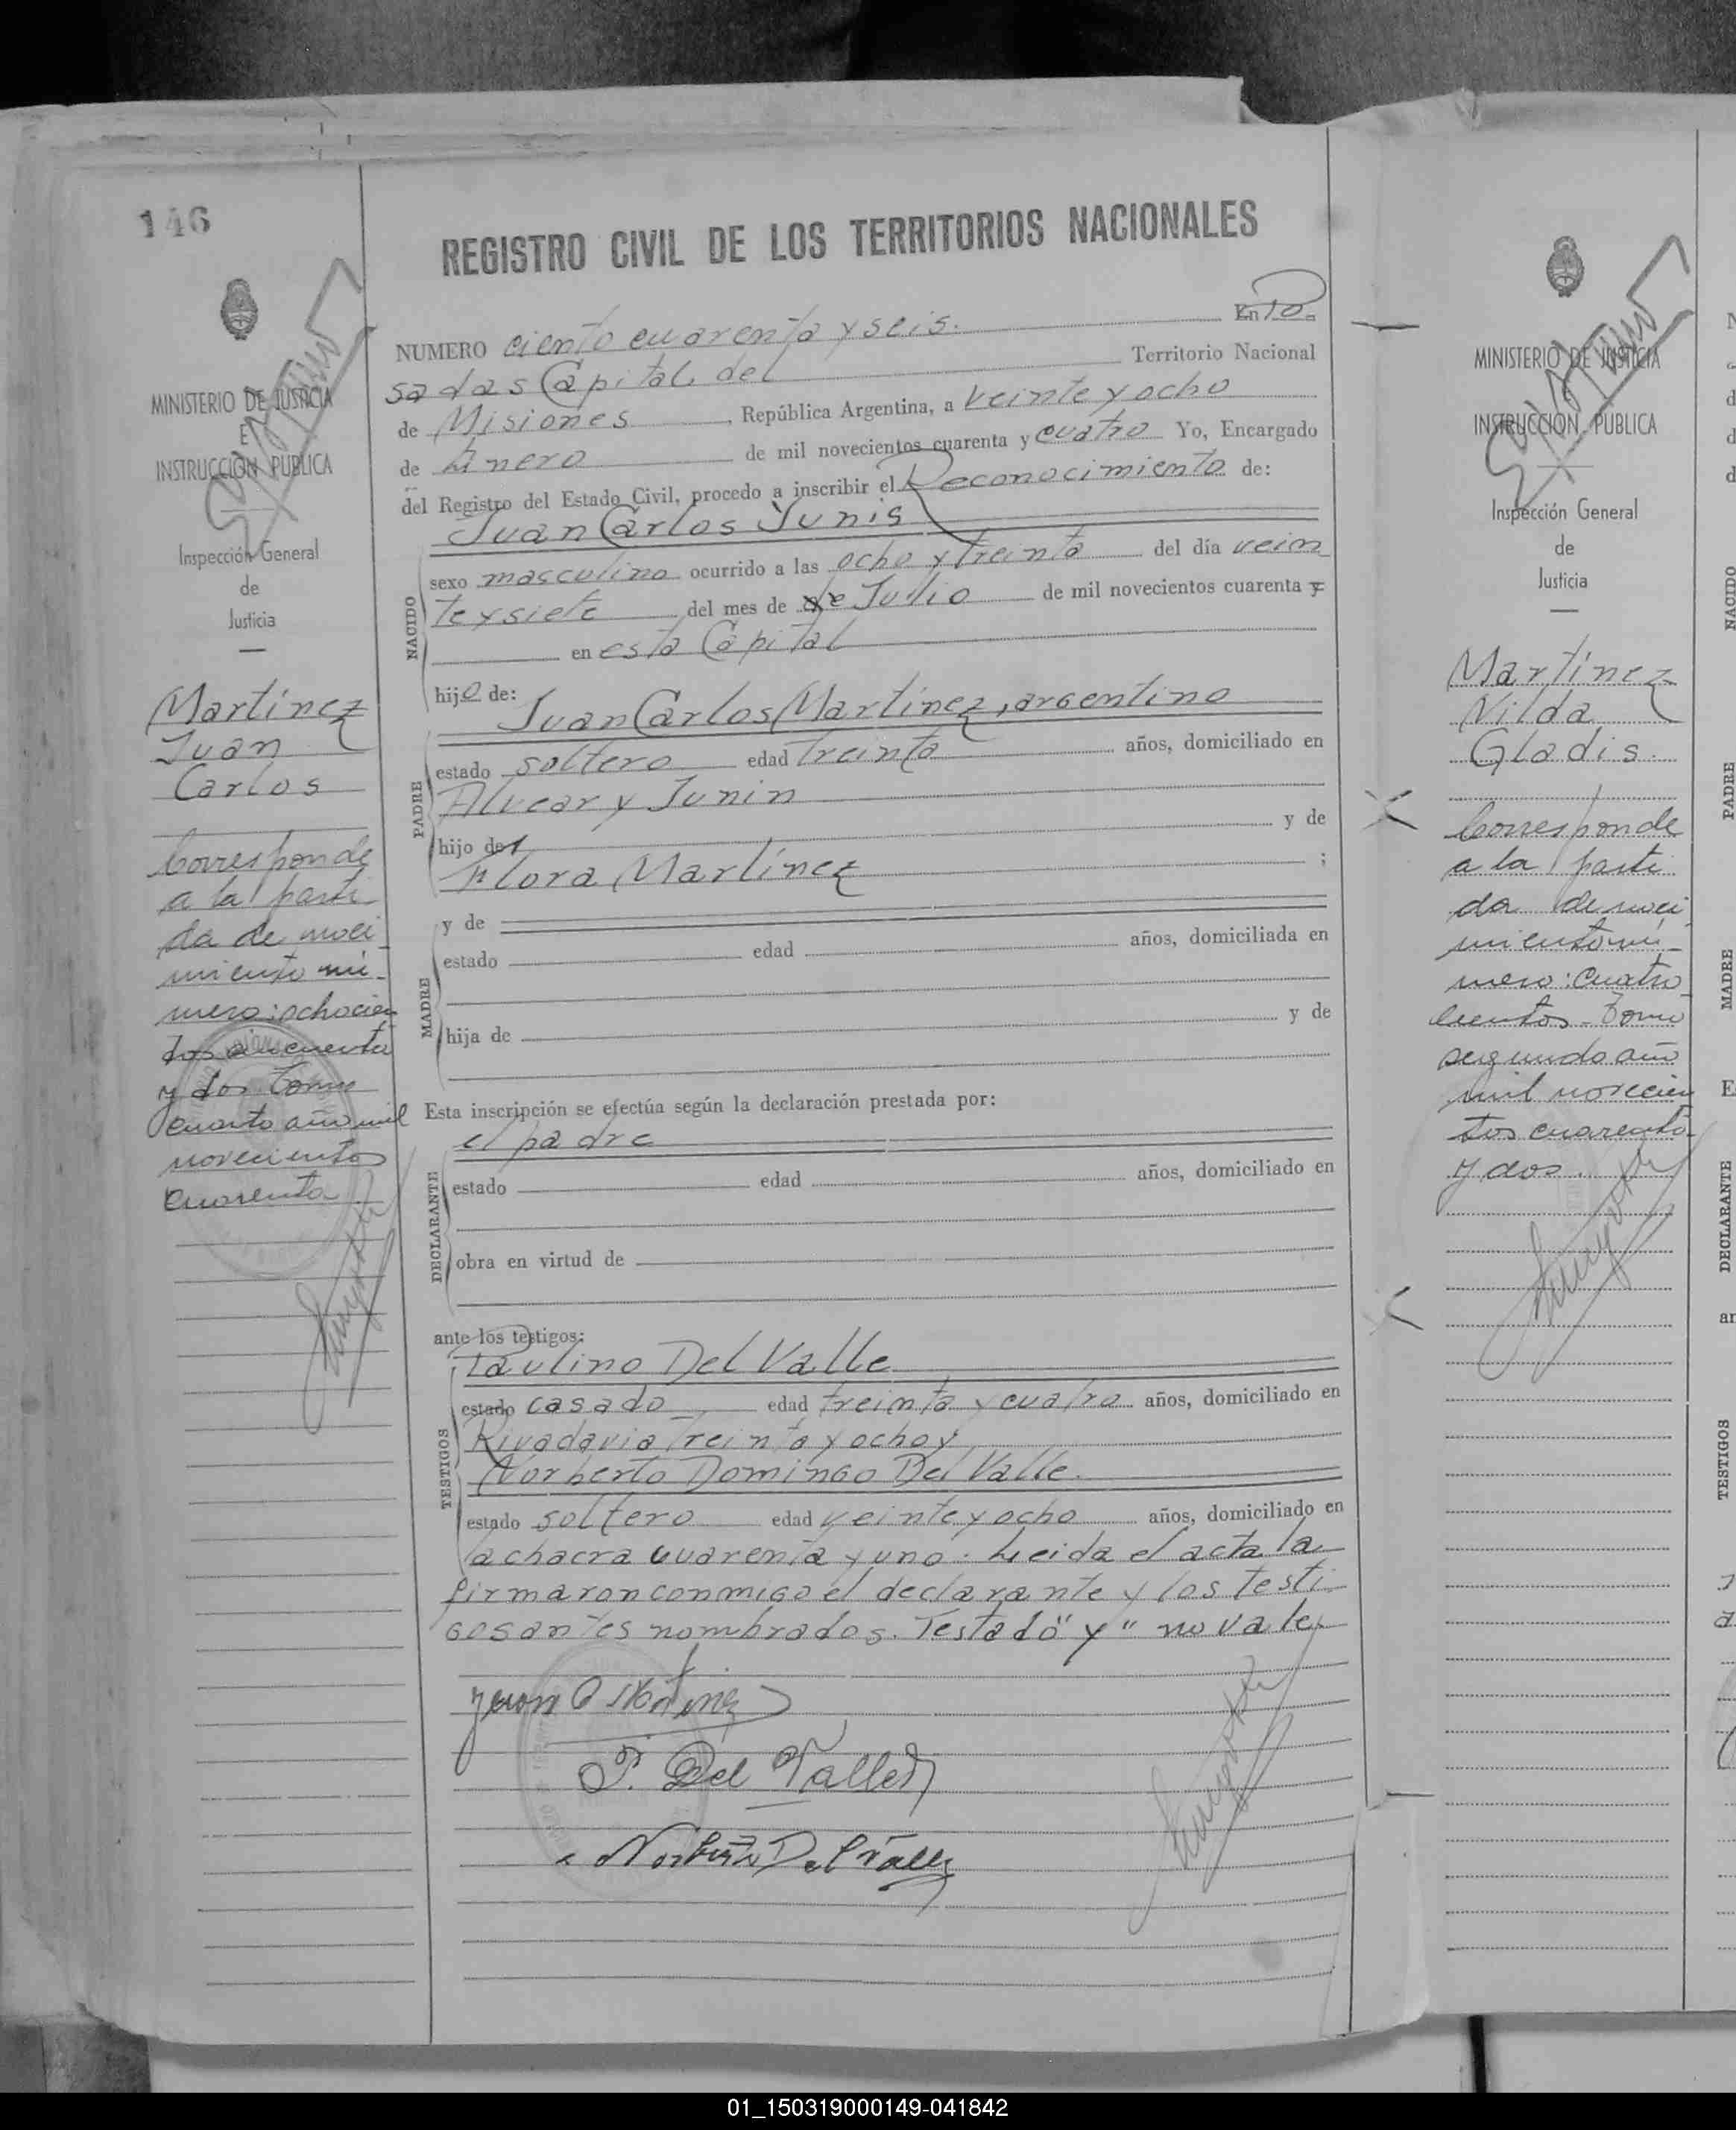 146
MINISTERIO DE JUSTICIA
E
INSTRUCCIÓN PUBLICA
Inspección General
de
Justicia
Martínez
Juan
Carlos
Corresponde
a la parti
da de naci
miento nú-
mero: ochocien
tos cincuenta
y dos Tomo
cuarto año mil
novecientos
cuarenta
REGISTRO CIVIL DE LOS TERRITORIOS NACIONALES
NUMERO ciento cuarenta y seis. En Po
sadas Capital del Territorio Nacional
de Misiones, República Argentina, a veinte y ocho
de Enero de mil novecientos cuarenta y cuatro Yo, Encargado
del Registro del Estado Civil, procedo a inscribir el Reconocimiento de:
Juan Carlos Junis
NACIDO
sexo masculino ocurrido a las ocho y treinta del día vein
te y siete del mes de de Julio de mil novecientos cuarenta y
en esta Capital
hijo de:
Juan Carlos Martínez, argentino
PADRE
estado soltero edad treinta años, domiciliado en
Alvear y Junin
hijo de y de
Flora Martínez ;
MADRE
y de
estado edad años, domiciliada en
hija de y de
Esta inscripción se efectúa según la declaración prestada por:
el padre
DECLARANTE
estado edad años, domiciliado en
obra en virtud de
ante los testigos:
Paulino Del Valle
TESTIGOS
estado casado edad treinta y cuatro años, domiciliado en
Rivadavia treinta y ocho y
Norberto Domingo Del Valle.
estado soltero edad veinte y ocho años, domiciliado en
la chacra cuarenta y uno. Leida el acta la
firmaron conmigo el declarante y los testi
gos antes nombrados. Testado "y" no vale.
Juan C Martinez
P. Del Valle
Norberto Del Valle
MINISTERIO DE JUSTICIA
E
INSTRUCCION PUBLICA
Inspección General
de
Justicia
Martínez
Nilda
Gladis.
Corresponde
a la parti
da de naci
miento nú-
mero: cuatro
cientos - Tomo
segundo año
mil novecien
tos cuarenta
y dos.
NACIDO
PADRE
MADRE
DECLARANTE
TESTIGOS
01_150319000149-041842